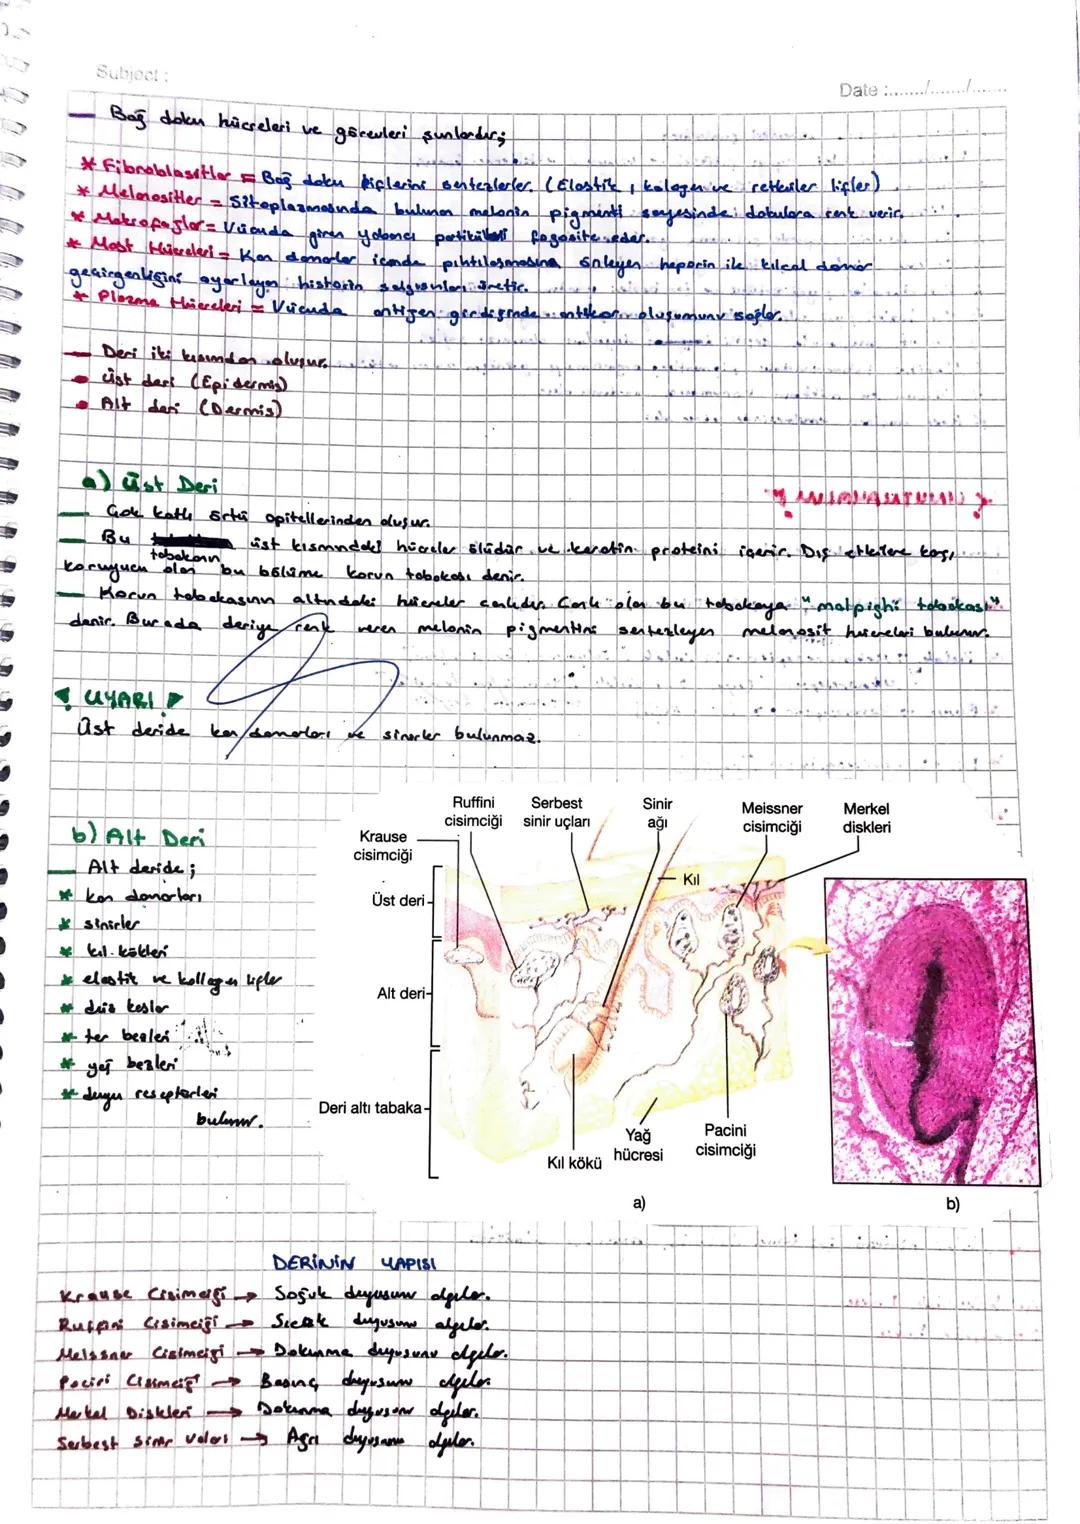 Subject :
Date :......../......../........
Bağ doku hücreleri ve görevleri şunlardır;
* Fibroblastlar = Bağ doku liflerini sentezlerler. (Elastik, kollagen ve retiküler lifler)
* Melonositler = Sitoplazmasında bulunan melanin pigmenti sayesinde dokulara renk verir.
* Makrofajlar = Vücuda giren yabancı partikülleri fagosite eder.
* Mast Hücreleri = Kan damarlar içinde pıhtılaşmasını önleyen heparin ile kılcal damar
geçirgenliğini ayarlayan histamin salgısını üretir.
* Plazma Hücreleri = Vücuda antijen girdiğinde antikor oluşumunu sağlar.
Deri iki kısımdan oluşur.
• Üst deri (Epidermis)
• Alt deri (Dermis)
a) Üst Deri
Çok katlı örtü epitellerinden oluşur.
Bu tabakanın üst kısmındaki hücreler ölüdür ve keratin proteini içerir. Dış etkilere karşı
koruyucu olan bu bölüme korun tabakası denir.
Korun tabakasının altındaki hücreler canlıdır. Canlı olan bu tabakaya "malpighi tabakası"
denir. Burada deriye renk veren melanin pigmentini sentezleyen melanosit hücreleri bulunur.
! UYARI !
Üst deride kan damarları ve sinirler bulunmaz.
b) Alt Deri
Alt deride ;
* kan damarları
* sinirler
* kıl kökleri
* elastik ve kollagen lifler
* düz kaslar
* ter bezleri
* yağ bezleri
* duyu reseptörleri
bulunur.
Krause cisimciği
Ruffini cisimciği
Serbest sinir uçları
Sinir ağı
Meissner cisimciği
Merkel diskleri
Kıl
Üst deri
Alt deri
Deri altı tabaka
Kıl kökü
Yağ hücresi
Pacini cisimciği
a)
b)
DERİNİN YAPISI
Krause Cisimciği → Soğuk duyusunu algılar.
Ruffini Cisimciği → Sıcak duyusunu algılar.
Meissner Cisimciği → Dokunma duyusunu algılar.
Pacini Cisimciği → Basınç duyusunu algılar.
Merkel Diskleri → Dokunma duyusunu algılar.
Serbest Sinir Uçları → Ağrı duyusunu algılar.